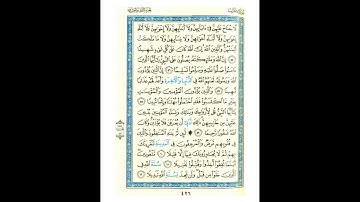 لَّا جُنَاحَ عَلَيْهِنَّ فِي ءَابَائِهِنَّ وَلَا أَبْنَائِهِنَّ وَلَا إِخْوَانِهِنَّ وَلَا أَبْنَاءِ
إِخْوَانِهِنَّ وَلَا أَبْنَاءِ أَخَوَاتِهِنَّ وَلَا نِسَائِهِنَّ وَلَا مَا مَلَكَتْ
أَيْمَانُهُنَّ وَاتَّقِينَ اللَّهَ إِنَّ اللَّهَ كَانَ عَلَىٰ كُلِّ شَيْءٍ شَهِيدًا
٥٥ إِنَّ اللَّهَ وَمَلَائِكَتَهُ يُصَلُّونَ عَلَى النَّبِيِّ يَا أَيُّهَا الَّذِينَ
ءَامَنُوا صَلُّوا عَلَيْهِ وَسَلِّمُوا تَسْلِيمًا ٥٦ إِنَّ الَّذِينَ يُؤْذُونَ
اللَّهَ وَرَسُولَهُ لَعَنَهُمُ اللَّهُ فِي الدُّنْيَا وَالْآخِرَةِ وَأَعَدَّ لَهُمْ عَذَابًا
مُّهِينًا ٥٧ وَالَّذِينَ يُؤْذُونَ الْمُؤْمِنِينَ وَالْمُؤْمِنَاتِ
بِغَيْرِ مَا اكْتَسَبُوا فَقَدِ احْتَمَلُوا بُهْتَانًا وَإِثْمًا مُّبِينًا ٥٨
يَا أَيُّهَا النَّبِيُّ قُل لِّأَزْوَاجِكَ وَبَنَاتِكَ وَنِسَاءِ الْمُؤْمِنِينَ يُدْنِينَ
عَلَيْهِنَّ مِن جَلَابِيبِهِنَّ ذَٰلِكَ أَدْنَىٰ أَن يُعْرَفْنَ فَلَا يُؤْذَيْنَ وَكَانَ
اللَّهُ غَفُورًا رَّحِيمًا ٥٩ لَّئِن لَّمْ يَنتَهِ الْمُنَافِقُونَ وَالَّذِينَ
فِي قُلُوبِهِم مَّرَضٌ وَالْمُرْجِفُونَ فِي الْمَدِينَةِ لَنُغْرِيَنَّكَ
بِهِمْ ثُمَّ لَا يُجَاوِرُونَكَ فِيهَا إِلَّا قَلِيلًا ٦٠ مَّلْعُونِينَ
أَيْنَمَا ثُقِفُوا أُخِذُوا وَقُتِّلُوا تَقْتِيلًا ٦١ سُنَّةَ اللَّهِ
فِي الَّذِينَ خَلَوْا مِن قَبْلُ وَلَن تَجِدَ لِسُنَّةِ اللَّهِ تَبْدِيلًا ٦٢
٤٢٦